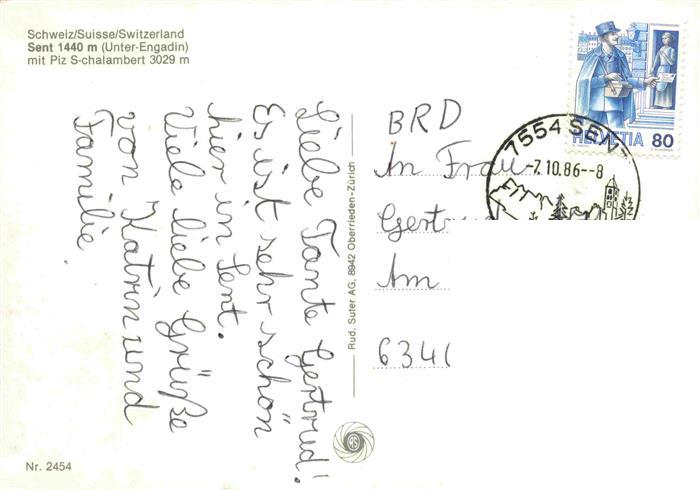 Schweiz/Suisse/Switzerland
Sent 1440 m (Unter-Engadin)
mit Piz S-chalambert 3029 m
Liebe Tante Gertrud!
Es ist sehr schön
hier in Sent.
Viele liebe Grüße
von Katrin und
Familie.
Rud. Suter AG, 8942 Oberrieden-Zürich
HELVETIA 80
7554 SENT
-7.10.86--8
BRD
An Frau
Gertru
Am
6341
Nr. 2454